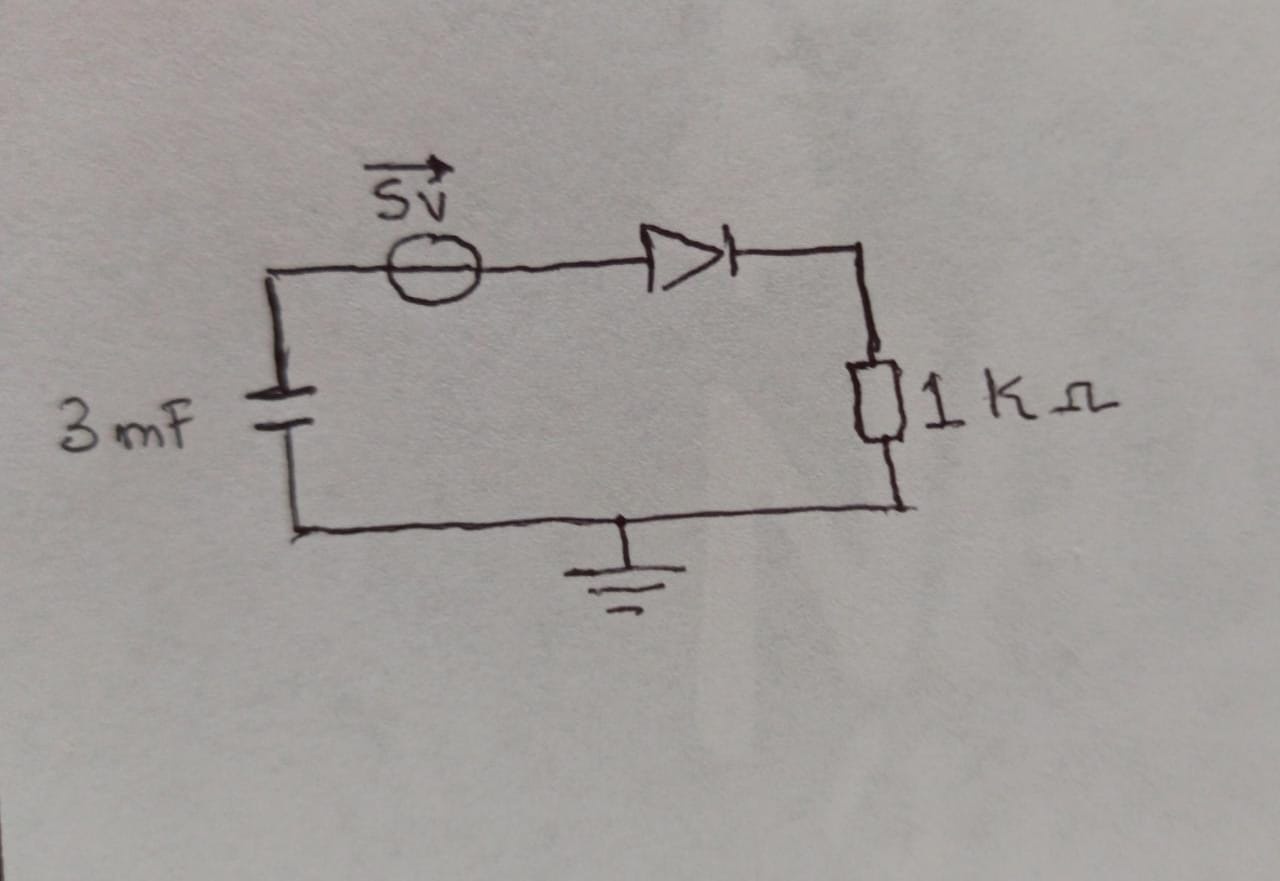 5V
3mF
1 K Ω